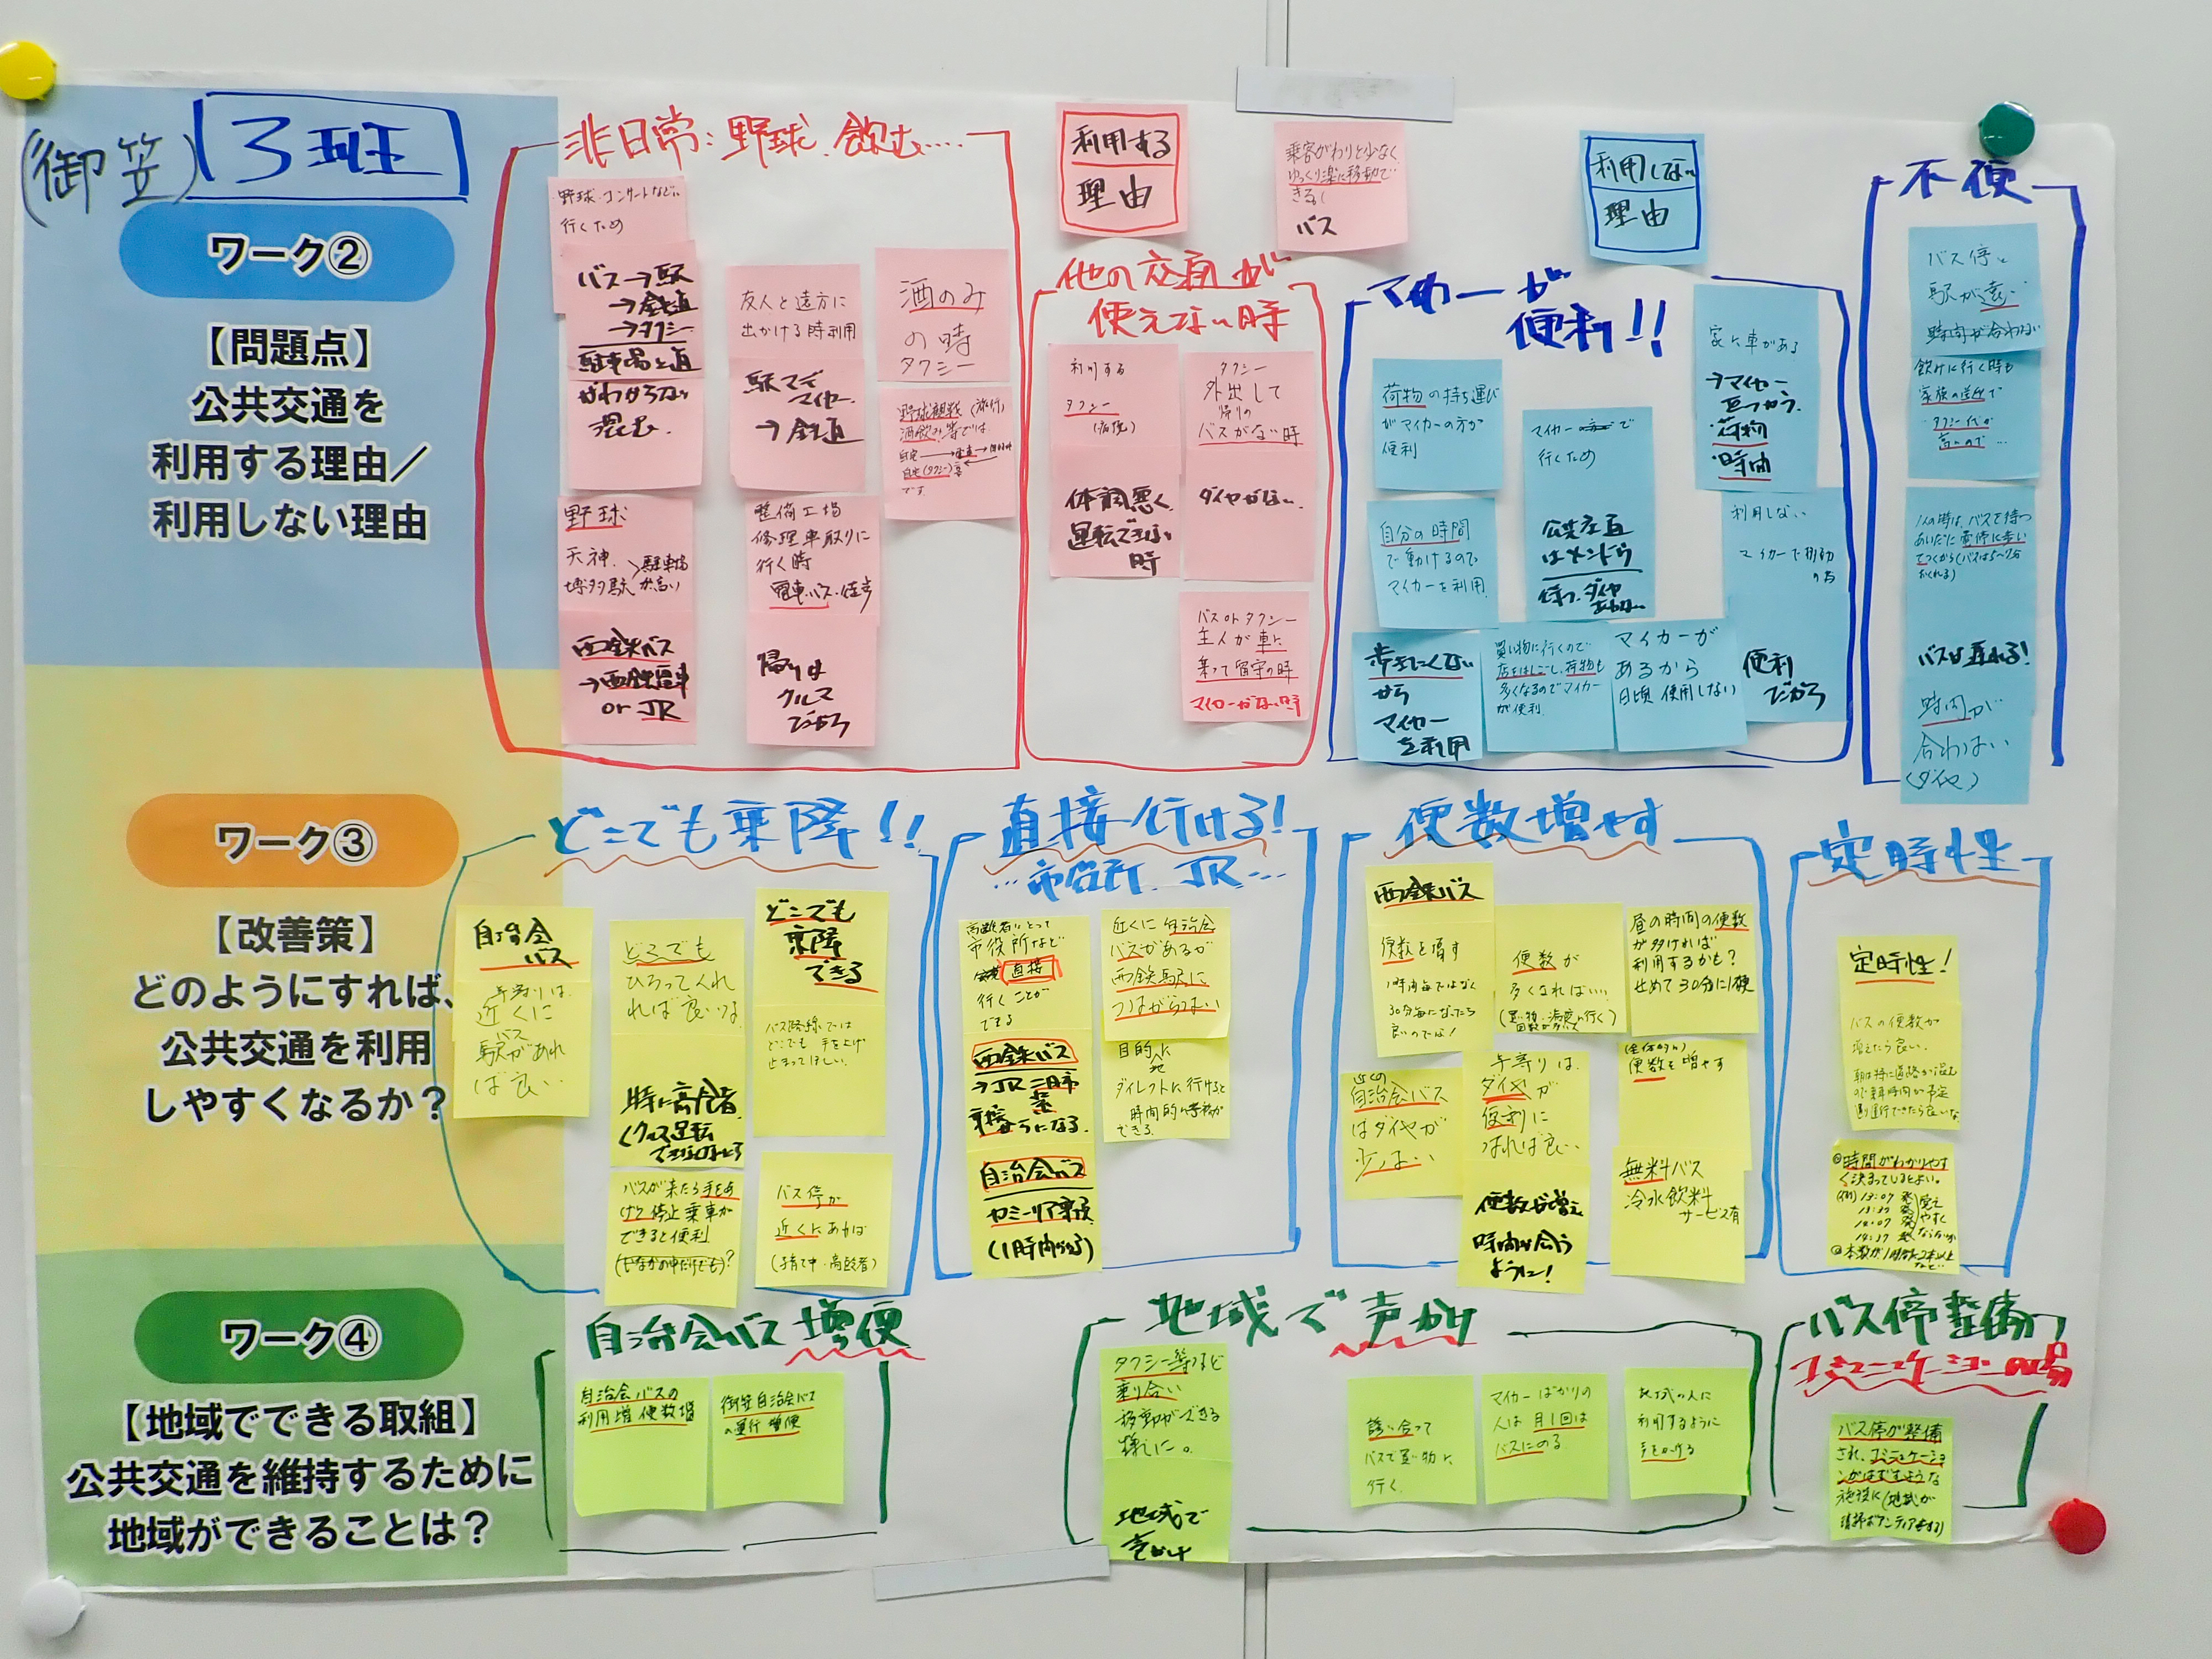 (御笠) 3班
ワーク②
【問題点】
公共交通を
利用する理由／
利用しない理由
非日常：野球、飲む……
野球・コンサートなどに
行くため
バス→駅
→鉄道
→タクシー
駐車場と道
がわからない
混む、
野球
天神
博多駅
駐車場
が高い
西鉄バス
→西鉄電車
or JR
友人と遠方に
出かける時利用
駅マデ
マイカー
→鉄道
整備工場
修理車取りに
行く時
電車・バス・徒歩
帰りは
クルマ
だから
酒のみ
の時
タクシー
野球観戦(旅行)
酒飲み等では
です
利用する
理由
乗客がわりと少なく
ゆっくり楽に移動で
きる。
バス
他の交通が
使えない時
利用する
タクシー
(病院)
体調悪く
運転できない
時
タクシー
外出して
帰りの
バスがない時
ダイヤがない
バス or タクシー
主人が車に
乗って留守の時
マイカーがない時
利用しない
理由
マイカーが
便利!!
荷物の持ち運び
がマイカーの方が
便利
自分の時間
で動けるので
マイカーを利用
歩きにくい
から
マイカー
を利用
マイカーで
行くため
公共交通
はメンドウ
待つ、ダイヤ
あわない
買い物に行くので
店をはしごし、荷物も
多くなるのでマイカー
が便利
マイカーが
あるから
日頃使用しない
家に車がある
→マイカー
をつかう
・荷物
・時間
利用しない
マイカーで移動
の為
便利
だから
不便
バス停と
駅が遠い
時間が合わない
飲みに行く時も
家族の送迎で
タクシー代が
高いので…
バスは遅れる!
時間が
合わない
(ダイヤ)
ワーク③
【改善策】
どのようにすれば、
公共交通を利用
しやすくなるか？
どこでも乗降!!
自治会
バス
年寄りは
近くに
バス
駅があれ
ば良い
どこでも
ひろってくれ
れば良いな
時に高齢者
(クルマ運転
できなくなったら
バスが来たら手をあ
げて停止乗車が
できると便利
どこでも
乗降
できる
バス路線では
どこでも手を上げ
止まってほしい
バス停が
近くにあれば
(子育て中・高齢者)
直接行ける!
…市役所、JR…
高齢者にとって
市役所など
直接
行くことが
できる
西鉄バス
→JR二日市
自治会バス
カミーリヤ乗換
近くに自治会
バスがあるが
西鉄駅に
つながらない
目的地へ
ダイレクトに行けると
時間的に
できる
便数増やす
西鉄バス
便数を増す
1時間毎ではなく
30分毎になったら
良いのでは!
近くの
自治会バス
はダイヤが
少ない
便数が
多くなればいい
年寄りは、
ダイヤが
便利に
なれば良い
便数が増え
時間が合う
ように!
昼の時間の便数
が多ければ
利用するかも？
せめて30分に1便
(全体的に)
便数を増やす
無料バス
冷水飲料
サービス有
定時性
定時性!
バスの便数が
増えたら良い。
朝は特に道路が混む
ので乗車時間が予定
通り運行できたら良いな
◎時間がわかりやす
く決まっているとよい。
(例) 13:07 発
13:37 発
14:07 発
14:37 発
覚え
やすく
ワーク④
【地域でできる取組】
公共交通を維持するために
地域ができることは？
自治会バス増便
自治会バスの
利用増 便数増
御笠自治会バス
の運行増便
地域で声かけ
タクシー等など
乗り合い
移動ができる
様に。
地域で
声かけ
誘い合って
バスで買い物に
行く
マイカーばかりの
人は月1回は
バスにのる
地域の人に
利用するように
声をかける
バス停整備
コミュニケーションの場
バス停が整備
され、コミュニケーショ
ンがはずむような
施設に(地域が
清掃ボランティアをする)